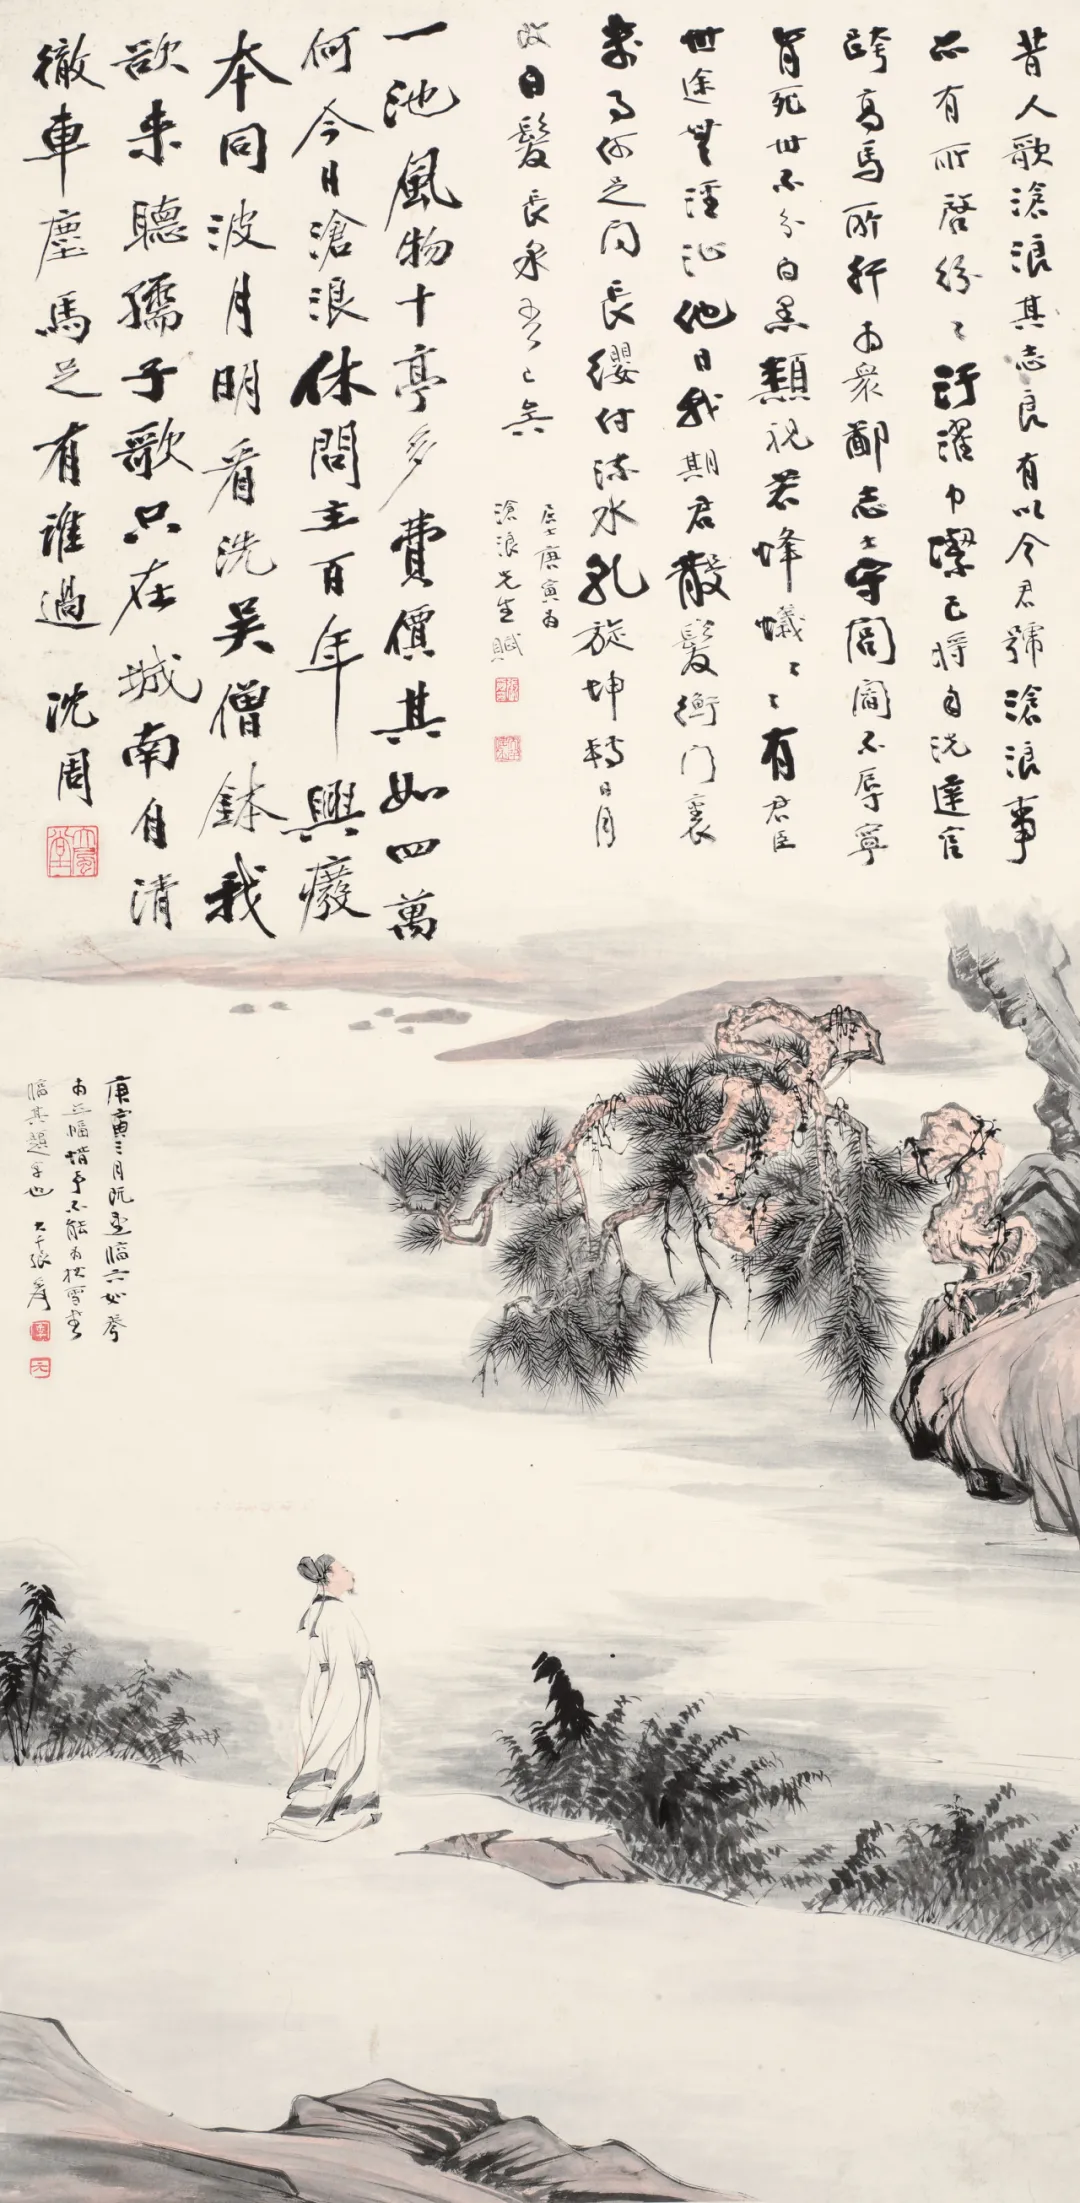 昔人歌滄浪其志良有以今君號滄浪事
亦有所啓紛〻汙濯巾潔己將自洗達官
跨高馬所 衆鄙志士守閭閻不辱寧
肯死世不分白黑 視若蜂蟻〻〻有君臣
世途無涇 他日我期君散髮衡門裏
何足問長纓付流水 旋坤轉日月
改白髮長 已矣
居士庚寅為
滄浪先生賦
一池風物十亭多費價其如四萬
何今日滄浪休問主百年興癈
本同波月明看洗吳僧鉢我
欲来聽孺子歌只在城南自清
徹車塵馬足有誰過 沈周
大風堂
庚寅三月既望臨六如琴
三幅惜予不能為 書
臨其題字也 大千張爰